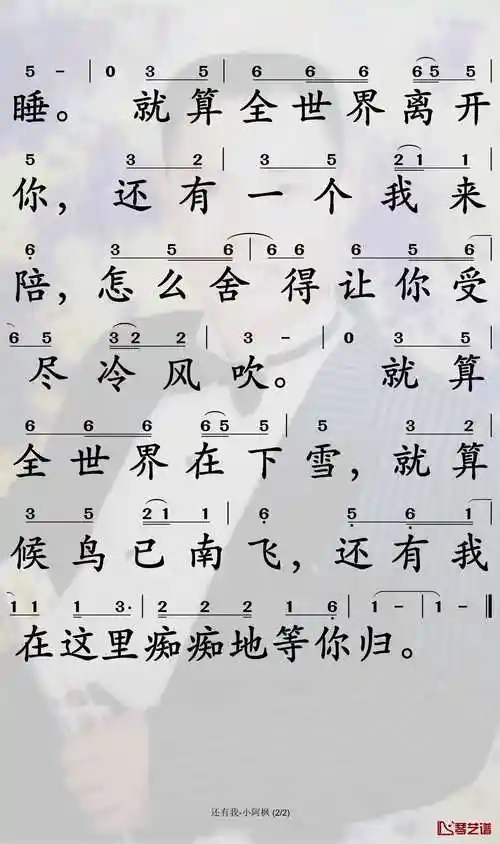 5 - | 0 3 5 | 6 6 6 6 5 5 |
睡。 就算全世界离开
5 3 2 | 3 5 2 1 1 |
你，还有一个我来
6 3 5 6 | 6 6 3 5 6 5
陪，怎么舍得让你受
6 5 3 2 2 | 3 - | 0 3 5 |
尽冷风吹。 就算
6 6 6 6 5 5 | 5 3 2
全世界在下雪，就算
3 5 2 1 1 | 6 5 6 1
候鸟已南飞，还有我
1 1 1 3· | 2 2 2 1 6 | 1 - | 1 - ‖
在这里痴痴地等你归。
还有我-小阿枫 (2/2)
琴艺谱